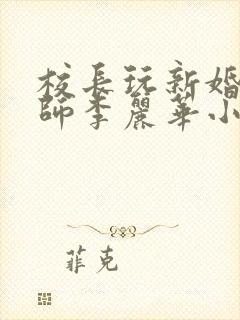 校長玩新婚
師李麗華小
菲克